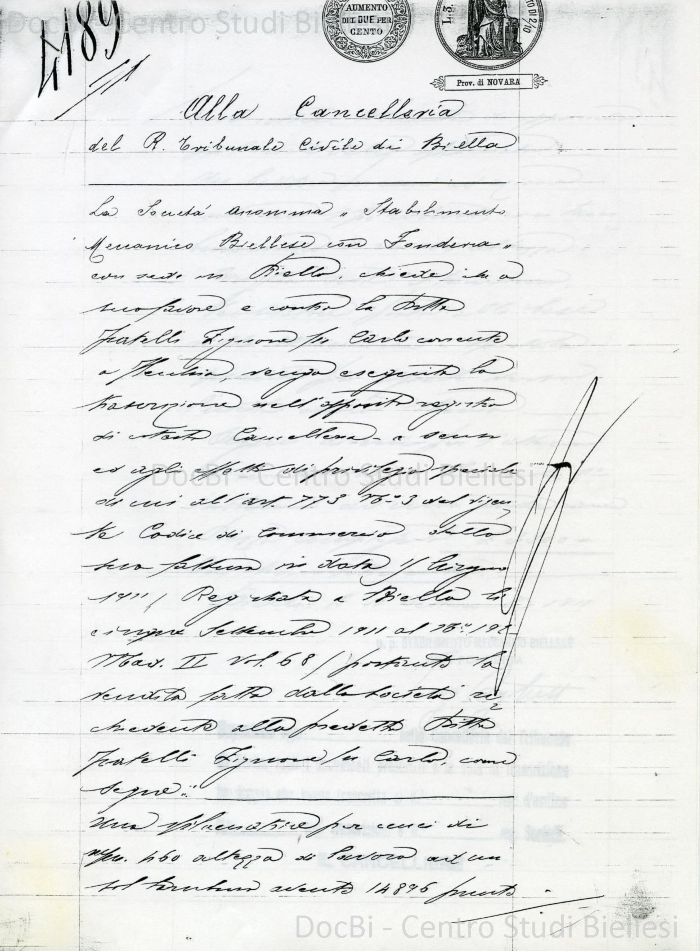 DocBi - Centro Studi Biellesi
4189
AUMENTO
DEL DUE PER
CENTO
L. 3
Prov. di NOVARA
Alla Cancelleria
del R. Tribunale Civile di Biella
La Società anonima „ Stabilimento
Meccanico Biellese con Fonderia „
con sede in Biella, chiede che a
suo favore e contro la Ditta
fratelli Zignone fu Carlo corrente
a , venga eseguita la
trascrizione nell'apposito registro
di Cancelleria a sensi
ed agli effetti di privilegio speciale
DocBi - Centro Studi Biellesi
di cui all'art. 773 N.° 3 del vigen
te Codice di Commercio della
sua fattura in data Giugno
1911 / Registrata a Biella li
cinque Settembre 1911 al N.°
Mod. II Vol. 68 / portante la
vendita fatta dalla Società ri
chiedente alla predetta Ditta
fratelli Zignone fu Carlo, come
segue :
Una per cenci di
m/m. 460 altezza di lavoro ad un
sol tamburo avente 14896 punte
DocBi - Centro Studi Biellesi